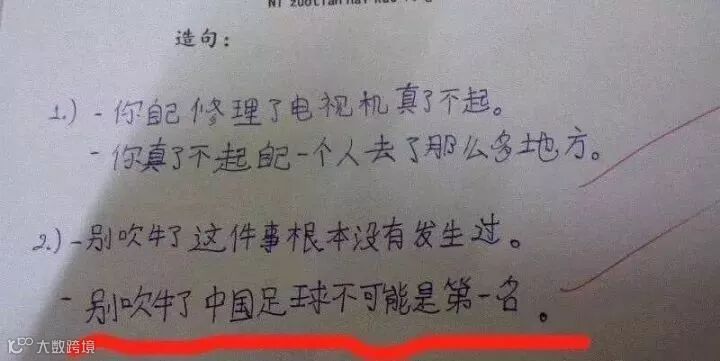 造句：
1.) - 你自己修理了电视机真了不起。
- 你真了不起自己一个人去了那么多地方。
2.) - 别吹牛了这件事根本没有发生过。
- 别吹牛了中国足球不可能是第一名。
大数跨境